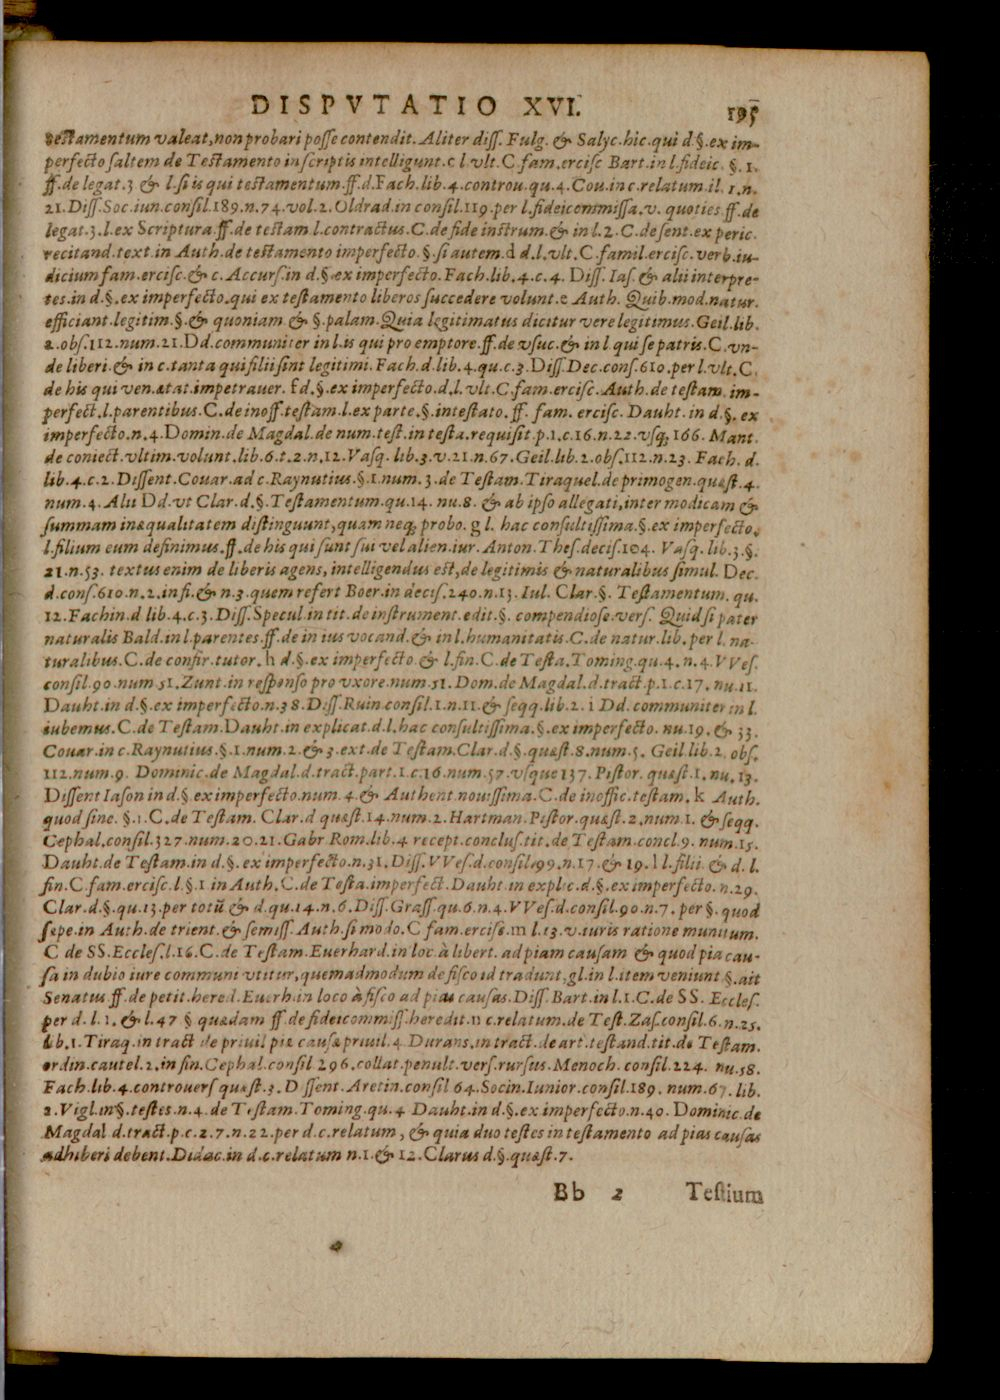 DISPVTATIO XVI. 195
testamentum valeat, non probari posse contendit. Aliter diss. Fulg. & Salyc. hic. qui d.§. ex im-
perfecto saltem de Testamento in scriptis intelligunt. c l. vlt. C. fam. ercisc Bart. in l. fideic. §. 1.
ff. de legat. 3 & l. si is qui testamentum. ff. d. Fach. lib. 4. controu. qu. 4. Cou. in c. relatum. il. 1. n.
21. Diss. Soc. iun. consil. 189. n. 74. vol. 2. Oldrad. in consil. 119. per l. fideicommissa. v. quoties. ff. de
legat. 3. l. ex Scriptura. ff. de testam l. contractus. C. de fide instrum. & in l. 2. C. de sent. ex peric.
recitand. text. in Auth. de testamento imperfecto. §. si autem. d d. l. vlt. C. famil. ercisc. verb. iu-
dicium fam. ercisc. & c. Accurs. in d.§. ex imperfecto. Fach. lib. 4. c. 4. Diss. Ias. & alii interpre-
tes. in d.§. ex imperfecto. qui ex testamento liberos succedere volunt. e Auth. Quib. mod. natur.
efficiant. legitim. §. & quoniam & §. palam. Quia legitimatus dicitur vere legitimus. Geil. lib.
2. obs. 112. num. 21. Dd. communiter in l. is qui pro emptore. ff. de vsuc. & in l qui se patris. C. vn-
de liberi. & in c. tanta qui filii sint legitimi. Fach. d. lib. 4. qu. c. 3. Diss. Dec. cons. 610. per l. vlt. C.
de his qui ven. ætat. impetrauer. f d.§. ex imperfecto. d. l. vlt. C. fam. ercisc. Auth. de testam. im-
perfect. l. parentibus. C. de inoff. testam. l. ex parte. §. intestato. ff. fam. ercisc. Dauht. in d.§. ex
imperfecto. n. 4. Domin. de Magdal. de num. test. in testa. requisit. p. 1. c. 16. n. 22. vsq; 166. Mant.
de coniect. vltim. volunt. lib. 6. t. 2. n. 12. Vasq. lib. 3. v. 21. n. 67. Geil. lib. 2. obs. 112. n. 23. Fach. d.
lib. 4. c. 2. Dissent. Couar. ad c. Raynutius. §. 1. num. 3. de Testam. Tiraquel. de primogen. quæst. 4.
num. 4. Alii Dd. vt Clar. d.§. Testamentum. qu. 14. nu. 8. & ab ipso allegati, inter modicam &
summam inæqualitatem distinguunt, quam neq; probo. g l. hac consultissima. §. ex imperfecto.
l. filium eum definimus. ff. de his qui sunt sui vel alien. iur. Anton. Thes. decis. 104. Vasq. lib. 3. §.
21. n. 53. textus enim de liberis agens, intelligendus est, de legitimis & naturalibus simul. Dec.
d. cons. 610. n. 2. in fi. & n. 3. quem refert Boer. in decis. 240. n. 13. Iul. Clar. §. Testamentum. qu.
12. Fachin. d lib. 4. c. 3. Diss. Specul. in tit. de instrument. edit. §. compendiose. vers. Quid si pater
naturalis Bald. in l. parentes. ff. de in ius vocand. & in l. humanitatis. C. de natur. lib. per l. na-
turalibus. C. de confir. tutor. h d.§. ex imperfecto. & l. fin. C. de Testa. Toming. qu. 4. n. 4. VVes.
consil. 90. num 51. Zunt. in responso pro vxore. num. 51. Dom. de Magdal. d. tract. p. 1. c. 17. nu. 11.
Dauht. in d.§. ex imperfecto. n. 38. Diss. Ruin. consil. 1. n. 11. & seqq. lib. 2. i Dd. communiter in l.
iubemus. C. de Testam. Dauht. in explicat. d. l. hac consultissima. §. ex imperfecto. nu. 19. & 33.
Couar. in c. Raynutius. §. 1. num. 2. & 3. ext. de Testam. Clar. d.§. quæst. 8. num. 5. Geil. lib. 2. obs.
112. num. 9. Dominic. de Magdal. d. tract. part. 1. c. 16. num. 57. vsque 137. Pistor. quæst. 1. nu. 13.
Dissent Iason in d.§. ex imperfecto. num. 4. & Authent. nouissima. C. de inoffic. testam. k Auth.
quod sine. §. 1. C. de Testam. Clar. d quæst. 14. num. 2. Hartman. Pistor. quæst. 2. num. 1. & seqq.
Cephal. consil. 327. num. 20. 21. Gabr. Rom. lib. 4 recept. conclus. tit. de Testam. concl. 9. num. 15.
Dauht. de Testam. in d.§. ex imperfecto. n. 31. Diss. VVes. d. consil. 99. n. 17. & 19. l l. filii. & d. l.
fin. C. fam. ercisc. l. §. 1 in Auth. C. de Testa. imperfect. Dauht. in explic. d.§. ex imperfecto. n. 29.
Clar. d.§. qu. 13. per totũ & d. qu. 14. n. 6. Diss. Grass. qu. 6. n. 4. VVes. d. consil. 90. n. 7. per §. quod
sepe. in Auth. de trient. & semiss. Auth. si modo. C fam. ercisc. m l. 13. v. iuris ratione munitum.
C de SS. Eccles. l. 16. C. de Testam. Euerhard. in loc. à libert. ad piam causam & quod pia cau-
sa in dubio iure communi vtitur, quemadmodum de fisco id tradunt, gl. in l. item veniunt §. ait
Senatus ff. de petit. hered. Euerh. in loco à fisco ad pias causas. Diss. Bart. in l. 1. C. de SS. Eccles.
per d. l. 1. & l. 47 § quædam ff. de fideicommiss. heredit. n c. relatum. de Test. Zas. consil. 6. n. 25.
lib. 1. Tiraq. in tract de priuil piæ causæ priuil. 4 Durans. in tract. de art. testand. tit. de Testam.
ordin. cautel. 2. in fin. Cephal. consil 296. collat. penult. vers. rursus. Menoch. consil. 224. nu. 58.
Fach. lib. 4. controuers quæst. 3. D ssent. Aretin. consil 64. Socin. Iunior. consil. 189. num. 67. lib.
2. Vigl. in §. testes. n. 4. de Testam. Toming. qu. 4 Dauht. in d.§. ex imperfecto. n. 40. Dominic. de
Magdal d. tract. p. c. 2. 7. n. 22. per d. c. relatum, & quia duo testes in testamento ad pias causas
adhiberi debent. Didac. in d. c. relatum n. 1. & 12. Clarus d.§. quæst. 7.
Bb 2 Testium